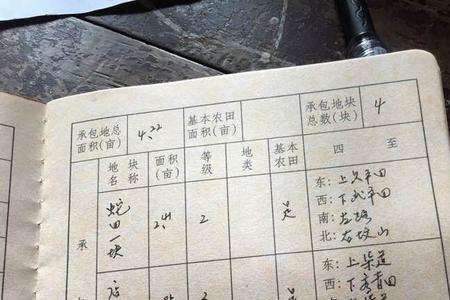 承包地总面积(亩) 4.22 基本农田面积(亩) 承包地块总数(块) 4
地块名称 面积(亩) 等级 地类 基本农田 四至
承 蛇田一块 2.4 2 是
东:上久平田
西:下武平田
南:左路
北:右坟山
东:上渠道
西:下